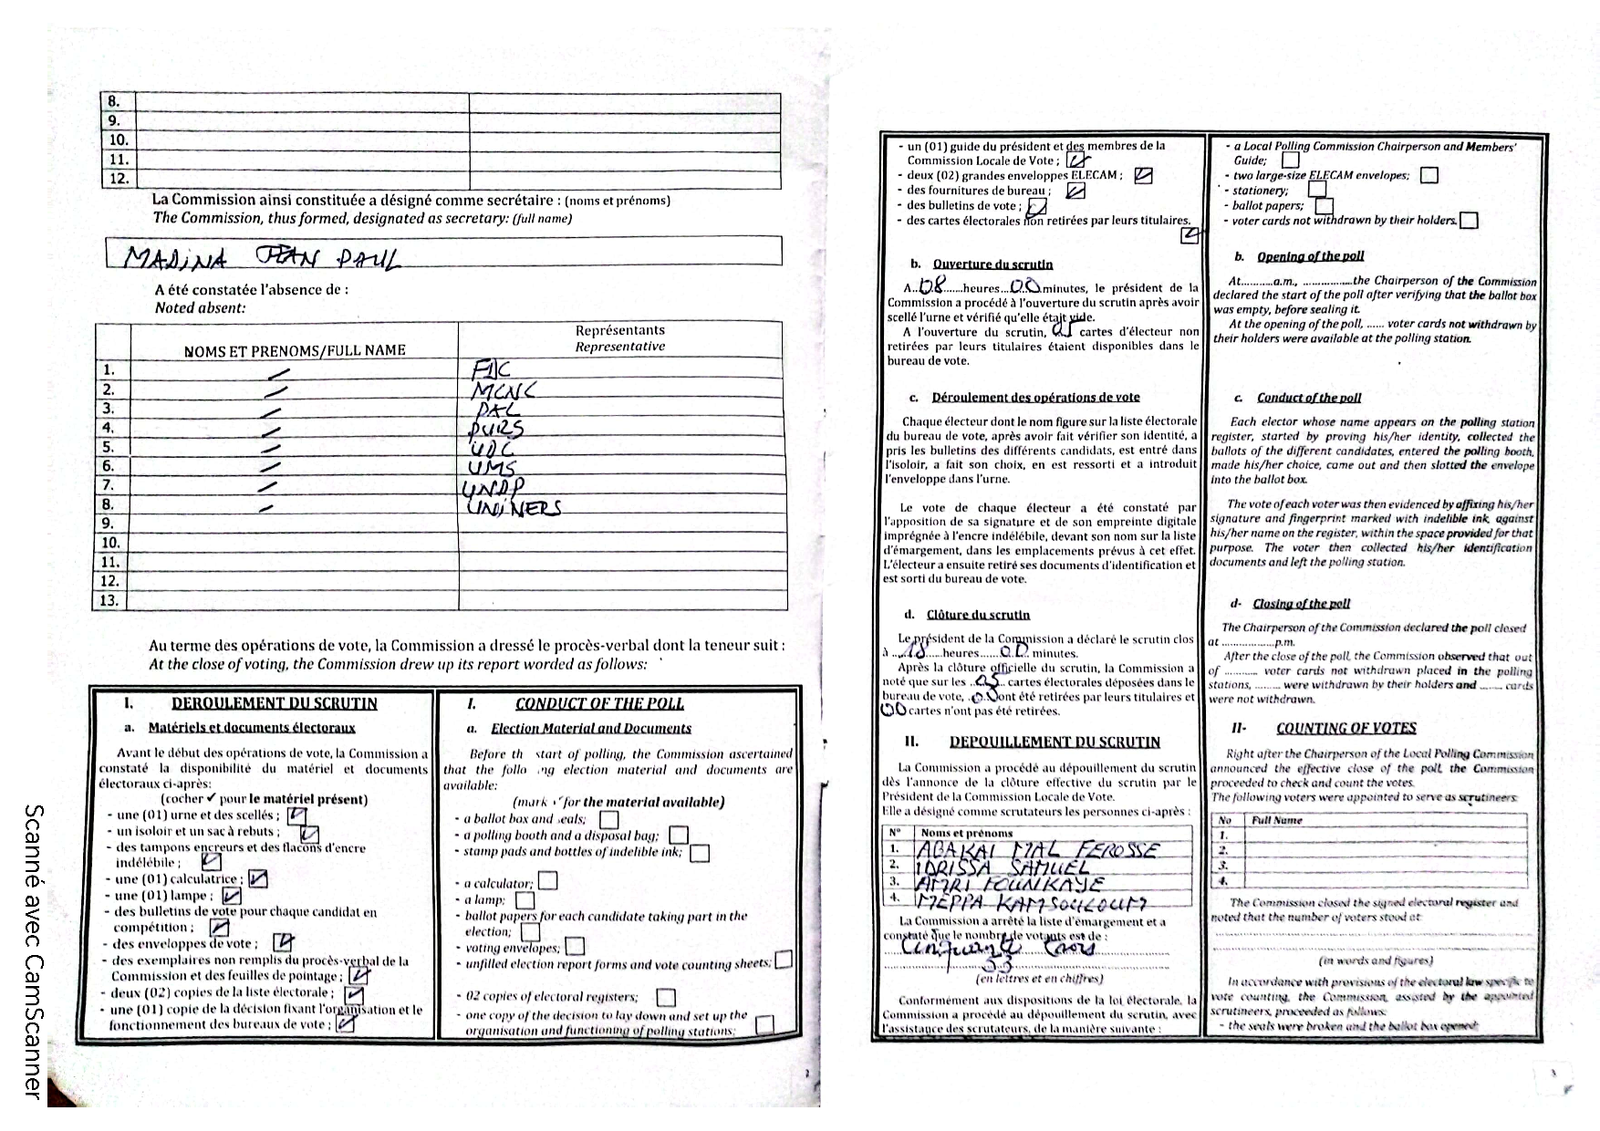 8.
9.
10.
11.
12.
La Commission ainsi constituée a désigné comme secrétaire : (noms et prénoms)
The Commission, thus formed, designated as secretary: (full name)
MADINA JEAN PAUL
A été constatée l'absence de :
Noted absent:
NOMS ET PRENOMS/FULL NAME
Représentants
Representative
1. FJC
2. MCNC
3. PAL
4. PURS
5. UDC
6. UMS
7. UNDP
8. UNINERS
9.
10.
11.
12.
13.
Au terme des opérations de vote, la Commission a dressé le procès-verbal dont la teneur suit :
At the close of voting, the Commission drew up its report worded as follows:
I. DEROULEMENT DU SCRUTIN
a. Matériels et documents électoraux
Avant le début des opérations de vote, la Commission a
constaté la disponibilité du matériel et documents
électoraux ci-après:
(cocher ✓ pour le matériel présent)
- une (01) urne et des scellés ;
- un isoloir et un sac à rebuts ;
- des tampons encreurs et des flacons d'encre
indélébile ;
- une (01) calculatrice ;
- une (01) lampe ;
- des bulletins de vote pour chaque candidat en
compétition ;
- des enveloppes de vote ;
- des exemplaires non remplis du procès-verbal de la
Commission et des feuilles de pointage ;
- deux (02) copies de la liste électorale ;
- une (01) copie de la décision fixant l'organisation et le
fonctionnement des bureaux de vote ;
I. CONDUCT OF THE POLL
a. Election Material and Documents
Before th start of polling, the Commission ascertained
that the follo ng election material and documents are
available:
(mark ✓ for the material available)
- a ballot box and seals;
- a polling booth and a disposal bag;
- stamp pads and bottles of indelible ink;
- a calculator;
- a lamp;
- ballot papers for each candidate taking part in the
election;
- voting envelopes;
- unfilled election report forms and vote counting sheets;
- 02 copies of electoral registers;
- one copy of the decision to lay down and set up the
organisation and functioning of polling stations;
2
- un (01) guide du président et des membres de la
Commission Locale de Vote ;
- deux (02) grandes enveloppes ELECAM ;
- des fournitures de bureau ;
- des bulletins de vote ;
- des cartes électorales non retirées par leurs titulaires.
b. Ouverture du scrutin
A..08......heures...00minutes, le président de la
Commission a procédé à l'ouverture du scrutin après avoir
scellé l'urne et vérifié qu'elle était vide.
A l'ouverture du scrutin, cartes d'électeur non
retirées par leurs titulaires étaient disponibles dans le
bureau de vote.
c. Déroulement des opérations de vote
Chaque électeur dont le nom figure sur la liste électorale
du bureau de vote, après avoir fait vérifier son identité, a
pris les bulletins des différents candidats, est entré dans
l'isoloir, a fait son choix, en est ressorti et a introduit
l'enveloppe dans l'urne.
Le vote de chaque électeur a été constaté par
l'apposition de sa signature et de son empreinte digitale
imprégnée à l'encre indélébile, devant son nom sur la liste
d'émargement, dans les emplacements prévus à cet effet.
L'électeur a ensuite retiré ses documents d'identification et
est sorti du bureau de vote.
d. Clôture du scrutin
Le président de la Commission a déclaré le scrutin clos
à ...18....heures......00.. minutes.
Après la clôture officielle du scrutin, la Commission a
noté que sur les ..05.. cartes électorales déposées dans le
bureau de vote, ont été retirées par leurs titulaires et
00 cartes n'ont pas été retirées.
II. DEPOUILLEMENT DU SCRUTIN
La Commission a procédé au dépouillement du scrutin
dès l'annonce de la clôture effective du scrutin par le
Président de la Commission Locale de Vote.
Elle a désigné comme scrutateurs les personnes ci-après :
N° Noms et prénoms
1. ABAKAI MAL FEROSSE
2. IDRISSA SAMUEL
3. AMRI FOUNKAYE
4. MEPPA KAMSOULOUM
La Commission a arrêté la liste d'émargement et a
constaté que le nombre de votants est de :
Cinquante trois
53
(en lettres et en chiffres)
Conformément aux dispositions de la loi électorale, la
Commission a procédé au dépouillement du scrutin, avec
l'assistance des scrutateurs, de la manière suivante :
- a Local Polling Commission Chairperson and Members'
Guide;
- two large-size ELECAM envelopes;
- stationery;
- ballot papers;
- voter cards not withdrawn by their holders.
b. Opening of the poll
At...........a.m., ...............the Chairperson of the Commission
declared the start of the poll after verifying that the ballot box
was empty, before sealing it.
At the opening of the poll, ...... voter cards not withdrawn by
their holders were available at the polling station.
c. Conduct of the poll
Each elector whose name appears on the polling station
register, started by proving his/her identity, collected the
ballots of the different candidates, entered the polling booth,
made his/her choice, came out and then slotted the envelope
into the ballot box.
The vote of each voter was then evidenced by affixing his/her
signature and fingerprint marked with indelible ink, against
his/her name on the register, within the space provided for that
purpose. The voter then collected his/her identification
documents and left the polling station.
d- Closing of the poll
The Chairperson of the Commission declared the poll closed
at ......................p.m.
After the close of the poll, the Commission observed that out
of ........... voter cards not withdrawn placed in the polling
stations, ........ were withdrawn by their holders and ....... cards
were not withdrawn.
II- COUNTING OF VOTES
Right after the Chairperson of the Local Polling Commission
announced the effective close of the poll, the Commission
proceeded to check and count the votes.
The following voters were appointed to serve as scrutineers:
No Full Name
1.
2.
3.
4.
The Commission closed the signed electoral register and
noted that the number of voters stood at
(in words and figures)
In accordance with provisions of the electoral law specific to
vote counting, the Commission, assisted by the appointed
scrutineers, proceeded as follows:
- the seals were broken and the ballot box opened;
3
Scanné avec CamScanner